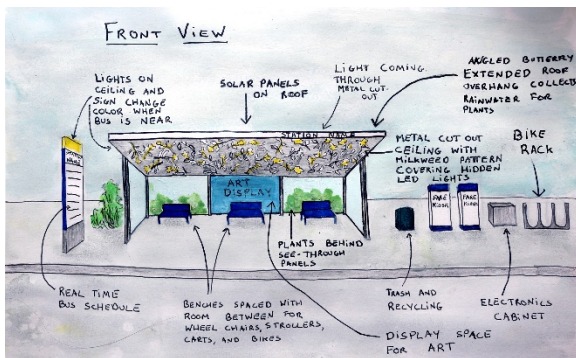 FRONT VIEW
LIGHTS ON
CEILING AND
SIGN CHANGE
COLOR WHEN
BUS IS NEAR
SOLAR PANELS
ON ROOF
LIGHT COMING
THROUGH
METAL CUT-
OUT
ANGLED BUTTERRY
EXTENDED ROOF
OVERHANG COLLECTS
RAINWATER FOR
PLANTS
STATION NAME
METAL CUT OUT
CEILING WITH
MILKWEED PATTERN
COVERING HIDDEN
LED LIGHTS
BIKE
RACK
STATION
NAME
ART
DISPLAY
FARE
KIOSK
FARE
KIOSK
PLANTS BEHIND
SEE-THROUGH
PANELS
REAL TIME
BUS SCHEDULE
BENCHES SPACED WITH
ROOM BETWEEN FOR
WHEEL CHAIRS, STROLLERS,
CARTS, AND BIKES
DISPLAY SPACE
FOR ART
TRASH AND
RECYCLING
ELECTRONICS
CABINET